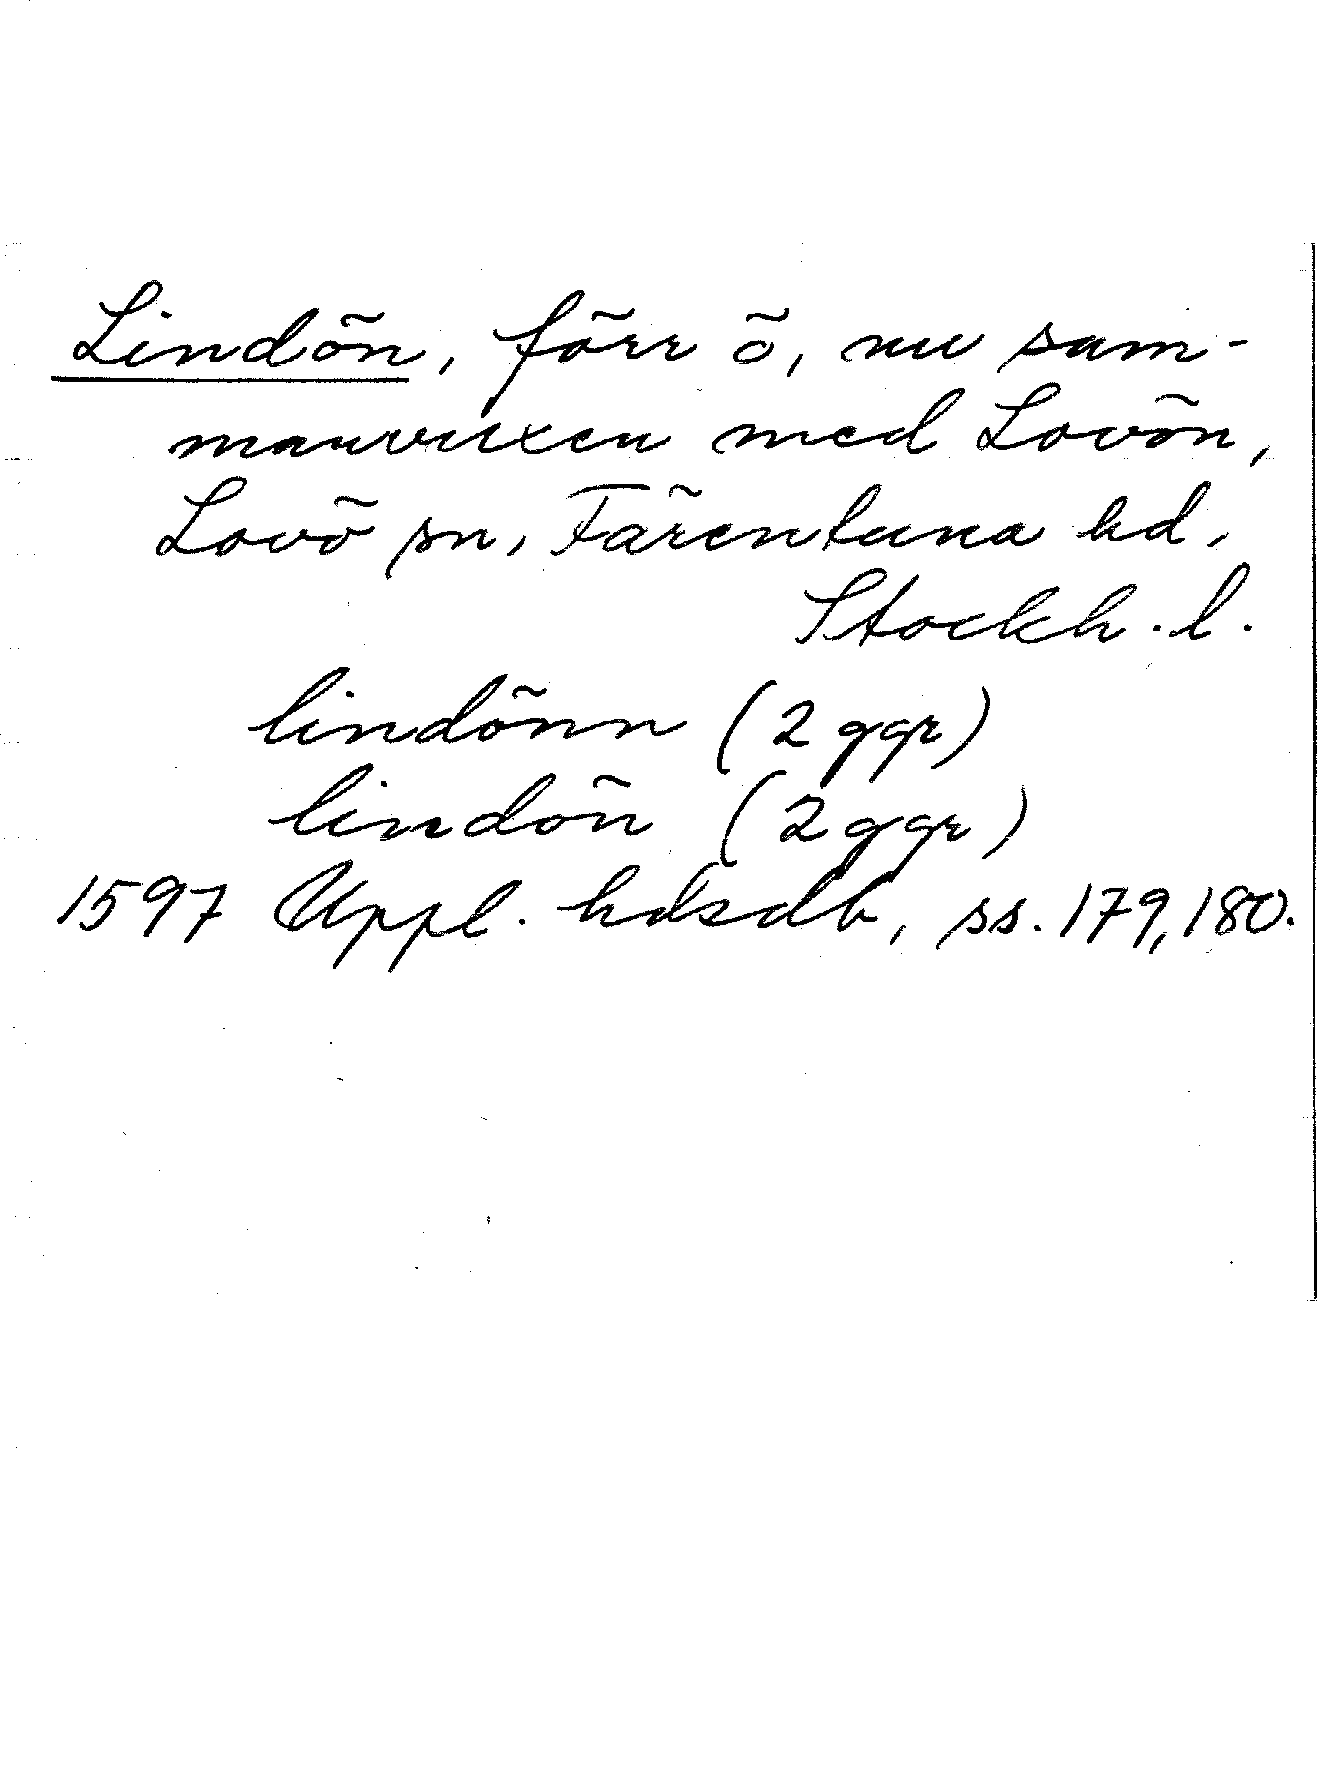 Lindön, förr ö, nu sam-
manvuxen med Lovön,
Lovö sn, Färentuna hd,
Stockh. l.
lindönn (2 ggr)
lindön (2 ggr)
1597 Uppl. hdsdb, ss. 179, 180.